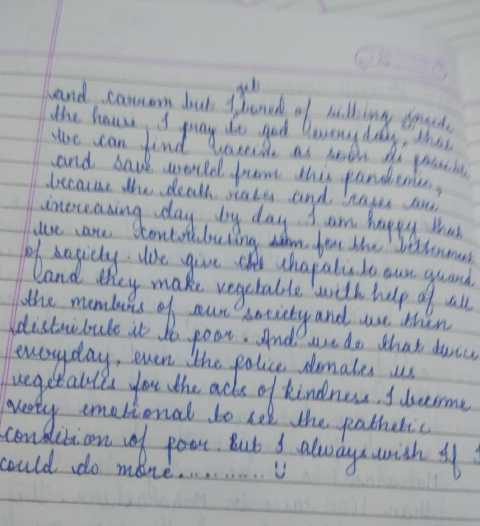 and carrom but I get bored of sitting inside
the house. I pray to god everyday, that
we can find vaccine as soon as possible
and save world from this pandemic,
because the death rates and cases are
increasing day by day. I am happy that
we are contributing sum for the betterment
of society. We give chapatis to our guard
and they make vegetable with help of all
the members of our society and we then
distribute it to poor. And we do that twice
everyday, even the police donates us
vegetables for the acts of kindness. I become
very emotional to see the pathetic
condition of poor. But I always wish If I
could do more............